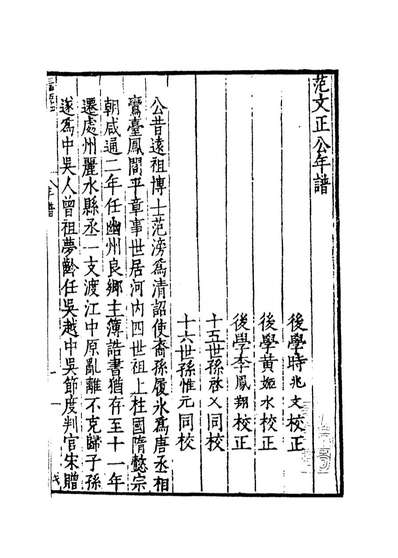 范文正公年譜
後學時兆文校正
後學黃姬水校正
後學李鳳翔校正
十五世孫啓乂同校
十六世孫惟元同校
公昔遠祖博士范滂爲清詔使裔孫履氷爲唐丞相
鸞臺鳳閣平章事世居河内四世祖上柱國隋懿宗
朝咸通二年任幽州良鄉主簿誥書猶存至十一年
遷處州麗水縣丞一支渡江中原亂離不克歸子孫
遂爲中吳人曾祖夢齡任吳越中吳節度判官宋贈
年譜
一